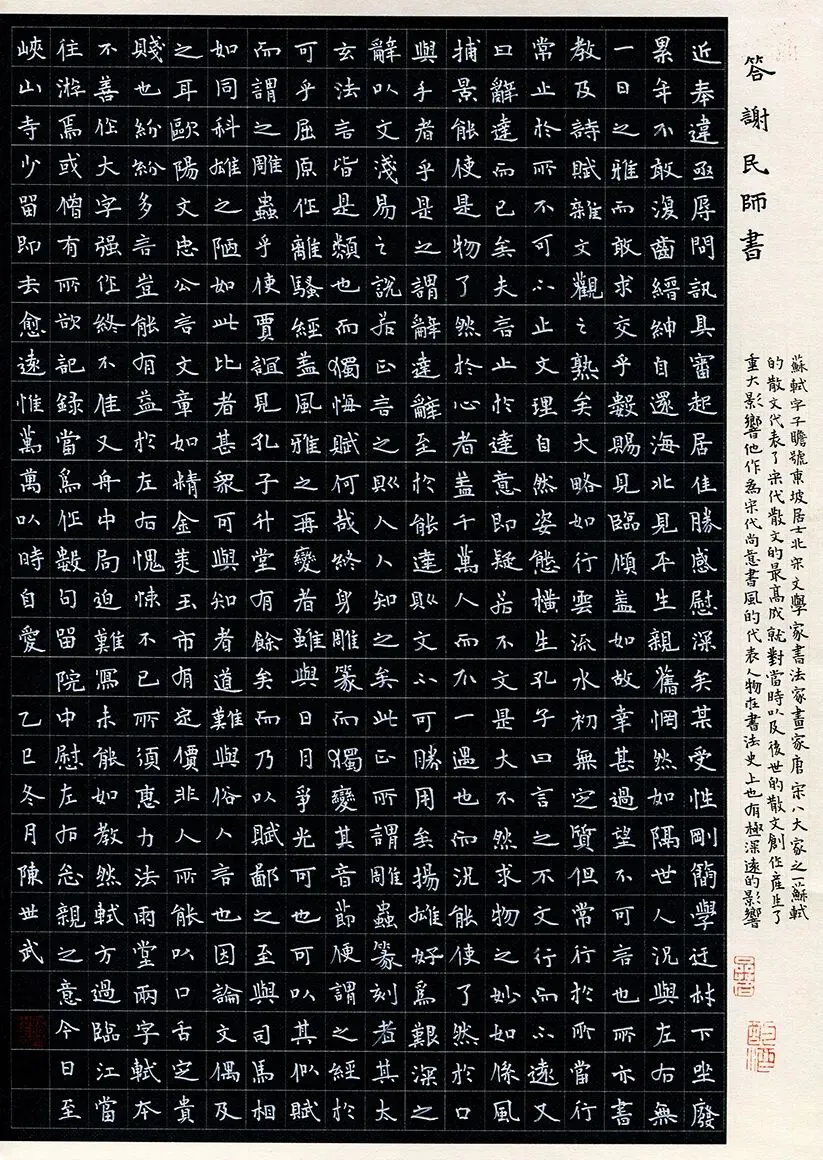 答謝民師書
蘇軾字子瞻號東坡居士北宋文學家書法家畫家唐宋八大家之一蘇軾
的散文代表了宋代散文的最高成就對當時以及後世的散文創作產生了
重大影響他作為宋代尚意書風的代表人物在書法史上也有極深遠的影響
近奉違亟辱問訊具審起居佳勝感慰深矣某受性剛簡學迂材下坐廢
累年不敢復齒縉紳自還海北見平生親舊惘然如隔世人況與左右無
一日之雅而敢求交乎數賜見臨傾蓋如故幸甚過望不可言也所示書
教及詩賦雜文觀之熟矣大略如行雲流水初無定質但常行於所當行
常止於所不可不止文理自然姿態橫生孔子曰言之不文行而不遠又
曰辭達而已矣夫言止於達意即疑若不文是大不然求物之妙如係風
捕景能使是物了然於心者蓋千萬人而不一遇也而況能使了然於口
與手者乎是之謂辭達辭至於能達則文不可勝用矣揚雄好為艱深之
辭以文淺易之說若正言之則人人知之矣此正所謂雕蟲篆刻者其太
玄法言皆是類也而獨悔賦何哉終身雕篆而獨變其音節便謂之經於
可乎屈原作離騷經蓋風雅之再變者雖與日月爭光可也可以其似賦
而謂之雕蟲乎使賈誼見孔子升堂有餘矣而乃以賦鄙之至與司馬相
如同科雄之陋如此比者甚眾可與知者道難與俗人言也因論文偶及
之耳歐陽文忠公言文章如精金美玉市有定價非人所能以口舌定貴
賤也紛紛多言豈能有益於左右愧悚不已所須惠力法雨堂兩字軾本
不善作大字强作終不佳又舟中局迫難寫未能如教然軾方過臨江當
往游焉或僧有所欲記錄當為作數句留院中慰左右念親之意今日至
峽山寺少留即去愈遠惟萬萬以時自愛 乙巳冬月陳世武